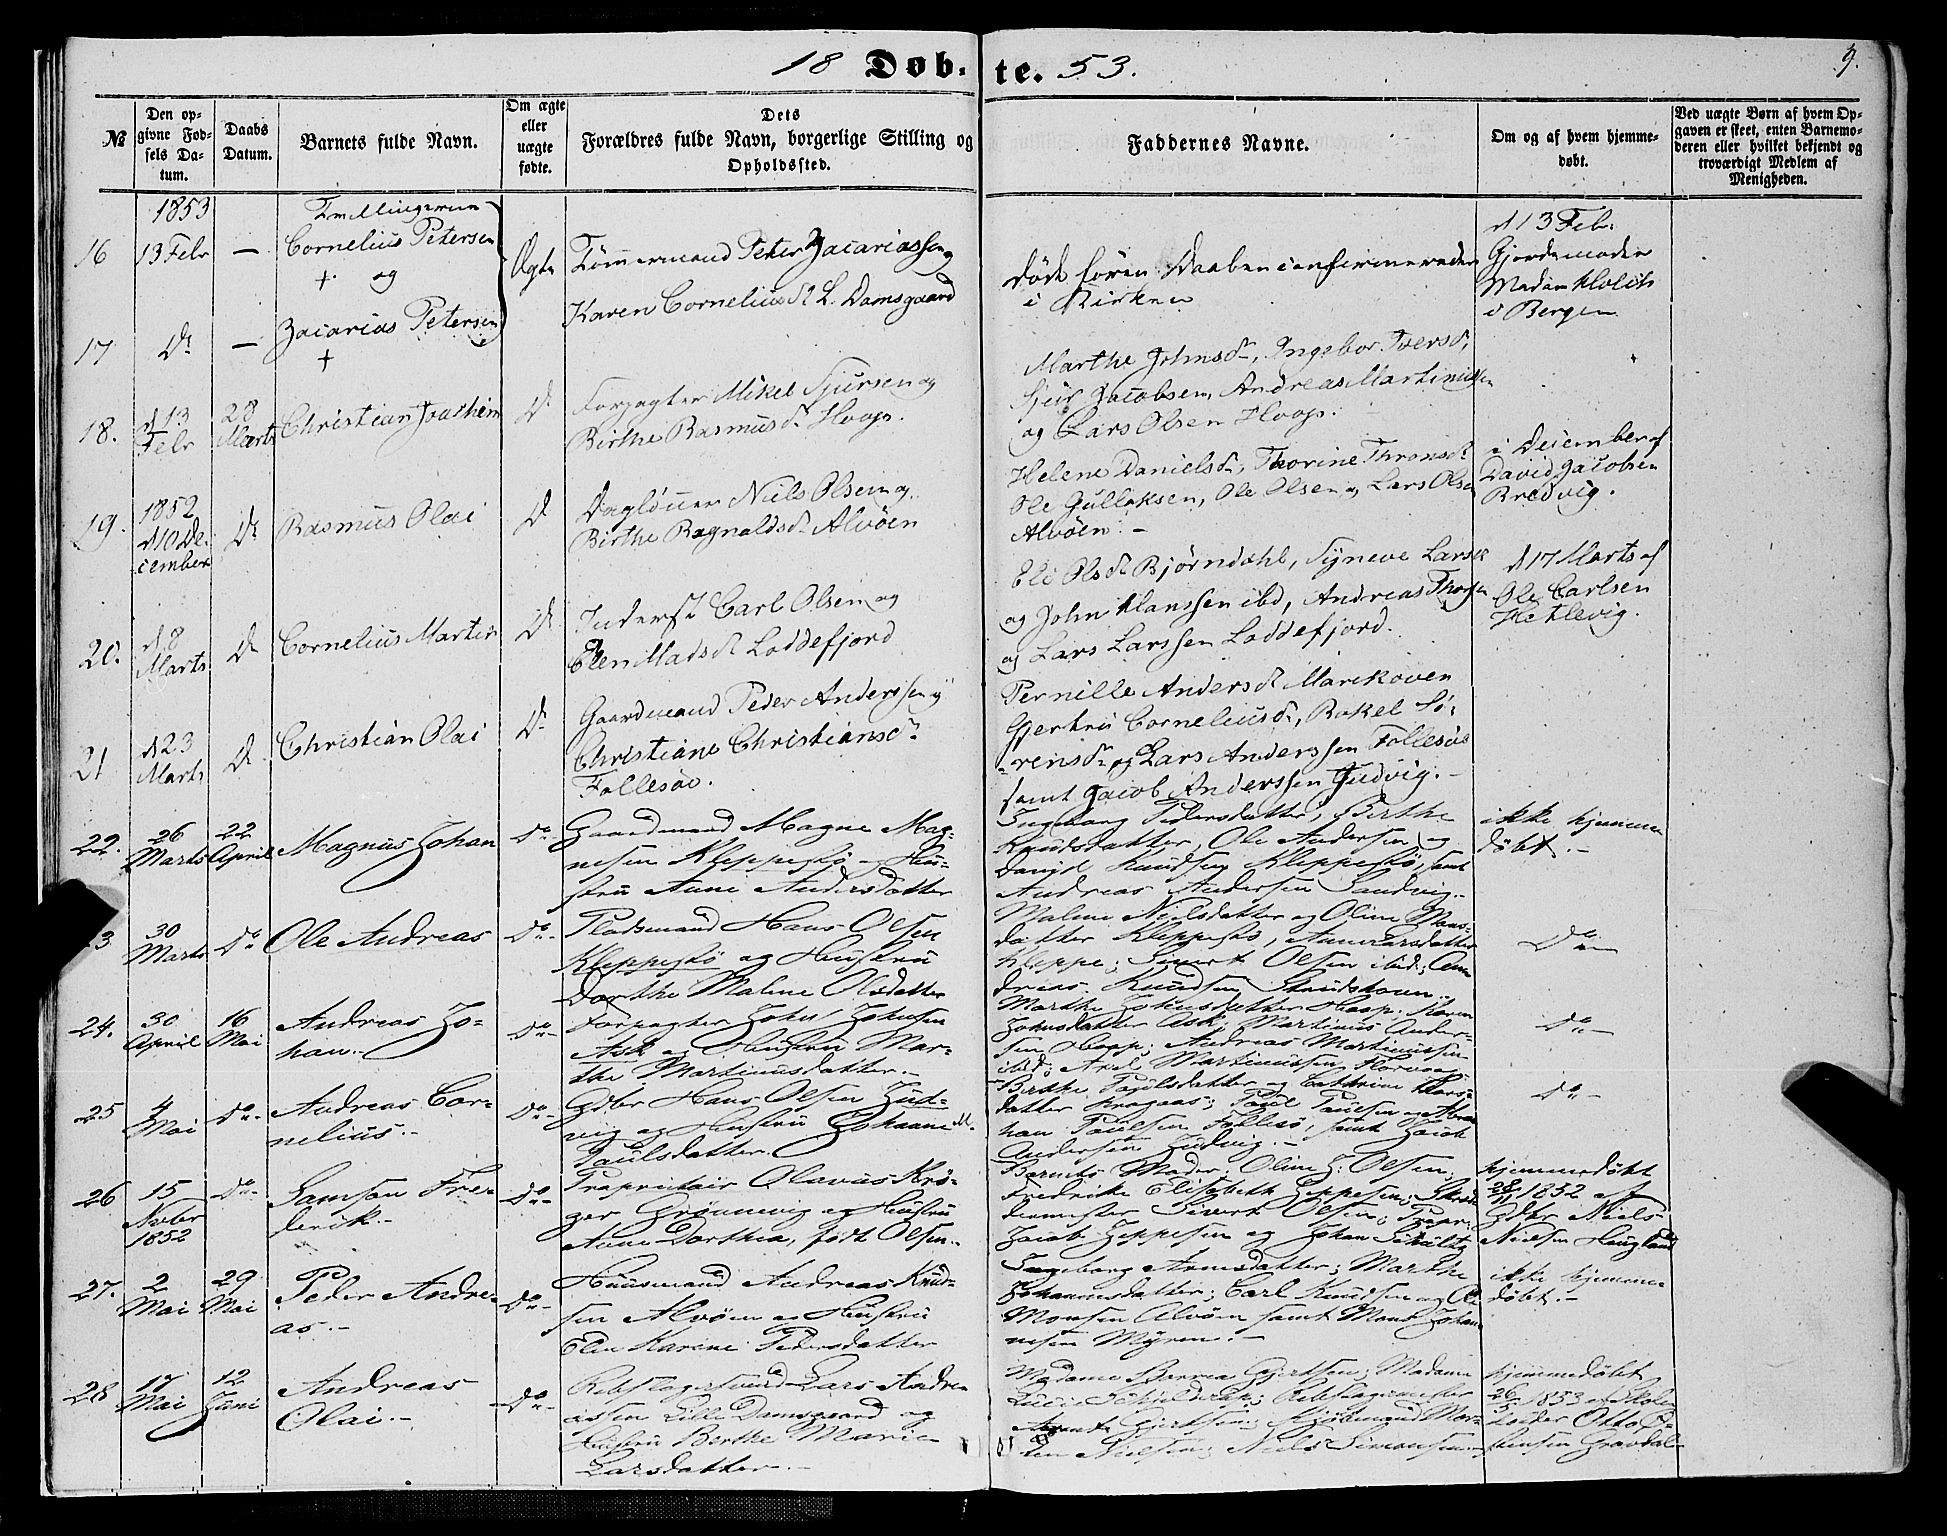 18 Døb- te. 53.
9.
№
Den op-
givne Fød-
sels Da-
tum.
Daabs
Datum.
Barnets fulde Navn.
Om ægte
eller
uægte
fødte.
Dets
Forældres fulde Navn, borgerlige Stilling og
Opholdssted.
Faddernes Navne.
Om og af hvem hjemme-
døbt.
Ved uægte Børn af hvem Op-
gaven er skeet, enten Barnemo-
deren eller hvilket bekjendt og
troværdigt Medlem af
Menigheden.
1853
16
13 Febr
—
Tvillingerne
Cornelius Petersen
+ og
Ægte
Tømmermand Peter Zacariassen og
Karen Corneliusd. L. Damsgaard
døde føren Daaben
i Kirken
d 13 Febr.
Gjordemoder
Madam
i Bergen
17
Do
—
Zacarias Petersen
+
18.
d 13
Febr
28
Marts
Christian Joachim
Do
Forpagter Mikel Sjursen og
Birthe Rasmusd. Hoop.
Marthe Johnsd., Ingebor Iversd,
Sjur Jacobsen, Andreas Martinussen
og Lars Olsen Hoop.
19.
1852
d 10 De-
cember
Do
Rasmus Olai
Do
Dagløner Niels Olsen og
Birthe Ragnaldsd. Alvøen
Helene Danielsd., Thorine Thronsd
Ole Gullaksen, Ole Olsen og Lars Olsen
Alvøen. —
i December af
David Jacobsen
Bredvig.
20.
d 8
Marts
Do
Cornelius Martin
Do
Inderst Carl Olsen og
Elen Madsd Loddefjord
Eli Olsd Bjørndahl, Synneve Larsd
og John Hanssen ibd, Andreas
og Lars Larssen Loddefjord.
d 17 Marts af
Ole Carlsen
Hetlevig.
21
d 23
Marts
Do
Christian Olai
Do
Gaardmand Peder Anderssen og
Christiane Christiansd.
Follesøe.
Pernille Andersd Marikoven
Gjertru Corneliusd., Rakel Sø-
rensd. og Lars Anderssen Follesøe
samt Jacob Anderssen Judvig. —
22.
26
Marts
22
April
Magnus Johan
Do
Gaardmand Magne Mag-
nesen Kleppestø og Hu-
stru Anne Andersdatter
Ingeborg Pedersdatter, Birthe
Knudsdatter, Ole Andersen og
Daniel Knudsen Kleppestø, samt
Andreas Andersen Sandvig.
ikke hjemme
døbt. —
23
30
Marts
Do
Ole Andreas
Do
Pladsmand Hans Olsen
Kleppestø og Hustru
Dorthe Malene Olsdatter
Malene Nielsdatter og Oline Mons-
datter Kleppestø, Anne Larsdatter
Kleppe; Sivert Olsen ibid; An-
dreas Knudsen
Do
24.
30
April
16
Mai
Andreas Jo-
han. —
Do
Forpagter John Johnsen
Ask og Hustru Mar-
the Martinusdatter. —
Marthe Johnsdatter Hoop; Karen
Johnsdatter Ask; Martinus Ander-
sen Hoop; Andreas Martinussen
ibid; Martinussen
Do
25
4
Mai
Do
Andreas Cor-
nelius. —
Do
Gdbr Hans Olsen Jud-
vig og Hustru Johanne M.
Paulsdatter.
Birthe Paulsdatter og Cathrine
datter; Paul Paulsen og
Paulsen Follesø; samt Jacob
Andersen Judvig. —
Do
26
15
Nvbr
1852
Do
Samson Fre-
derik. —
Do
Proprietair Olavus Krø-
ger Grønnevig og Hustru
Anne Dorthea, født Olsen.
Barnets Moder; Oline J: Olsen;
Fredrike Elisabeth Jeppesen;
Sivert Olsen;
Jacob Jeppesen og Johan
hjemmedøbt
28/11 1852 af
Gdbr Niels
Nielsen Haugland
27.
2
Mai
29
Mai
Peder Andre-
as. —
Do
Huusmand Andreas Knud-
sen Alvøen og Hustru
Elen Karine Pedersdatter
Ingeborg datter; Marthe
Johannesdatter; Carl Knudsen og Ole
Monsen Alvøen samt Mons Johan-
nesen Myren. —
ikke hjemme-
døbt. —
28
17
Mai
12
Juni
Andreas
Olai. —
Do
Rebslagersvend Lars Andre-
assen Lille Damsgaard og
Hustru Berthe Marie
Larsdatter. —
Madame Gjertsen; Madame
Rebslagermester
Gjertsen; Kjøbmand Mor-
ten Nielsen; Niels Simonsen
hjemmedøbt
26/5 1853 af Skole-
holder Otto
Gravdal